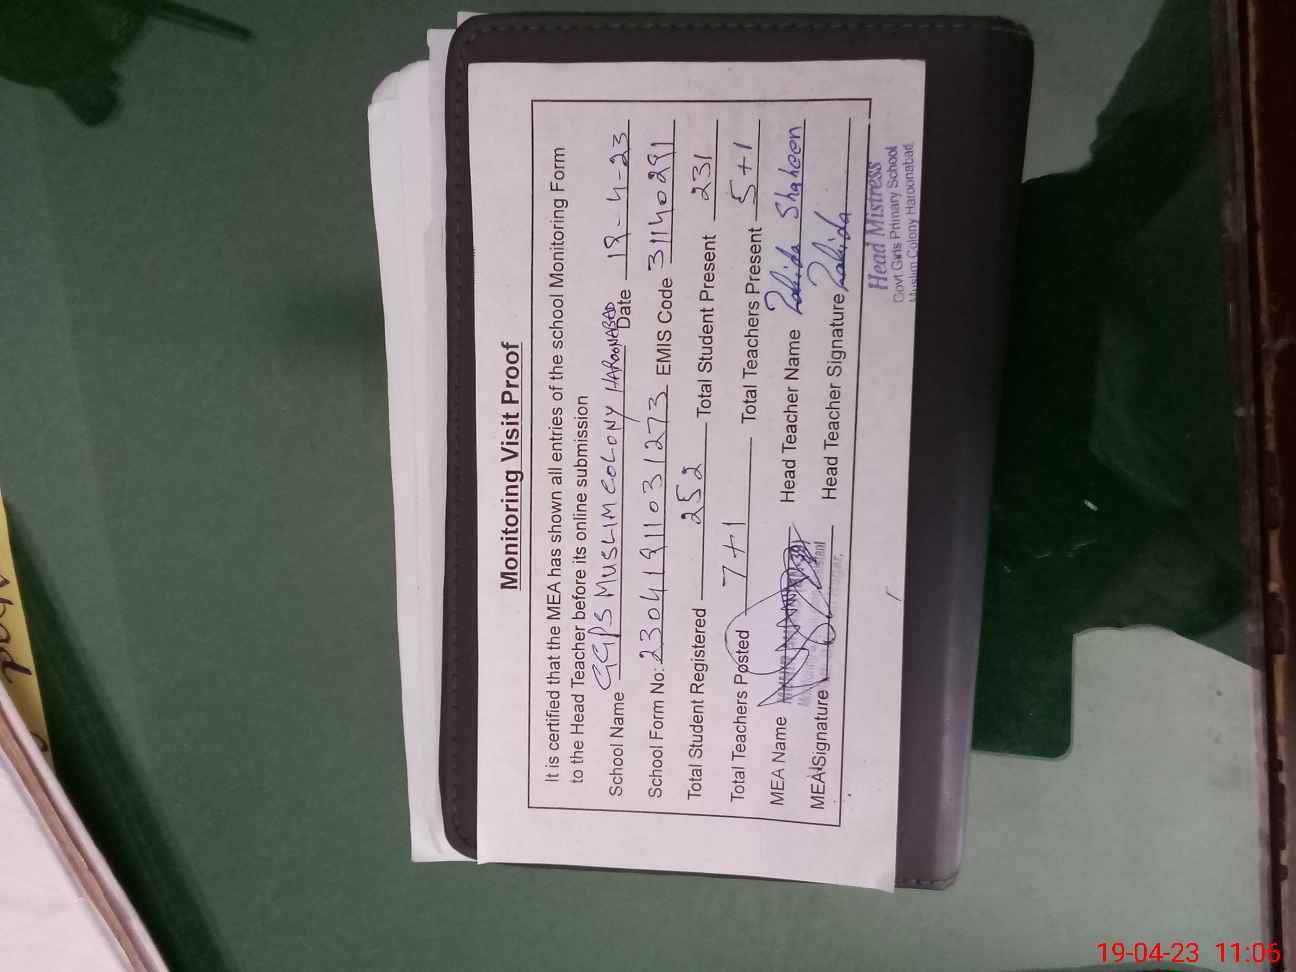 Monitoring Visit Proof
It is certified that the MEA has shown all entries of the school Monitoring Form
to the Head Teacher before its online submission
School Name GGPS MUSLIM COLONY HAROONABAD Date 19-4-23
School Form No: 23041911031273 EMIS Code 31140291
Total Student Registered 252 Total Student Present 231
Total Teachers Posted 7+1 Total Teachers Present 5+1
MEA Name Head Teacher Name Zahida Shaheen
MEA Signature Head Teacher Signature Zahida
Head Mistress
Govt Girls Primary School
Muslim Colony Haroonabad
19-04-23 11:06